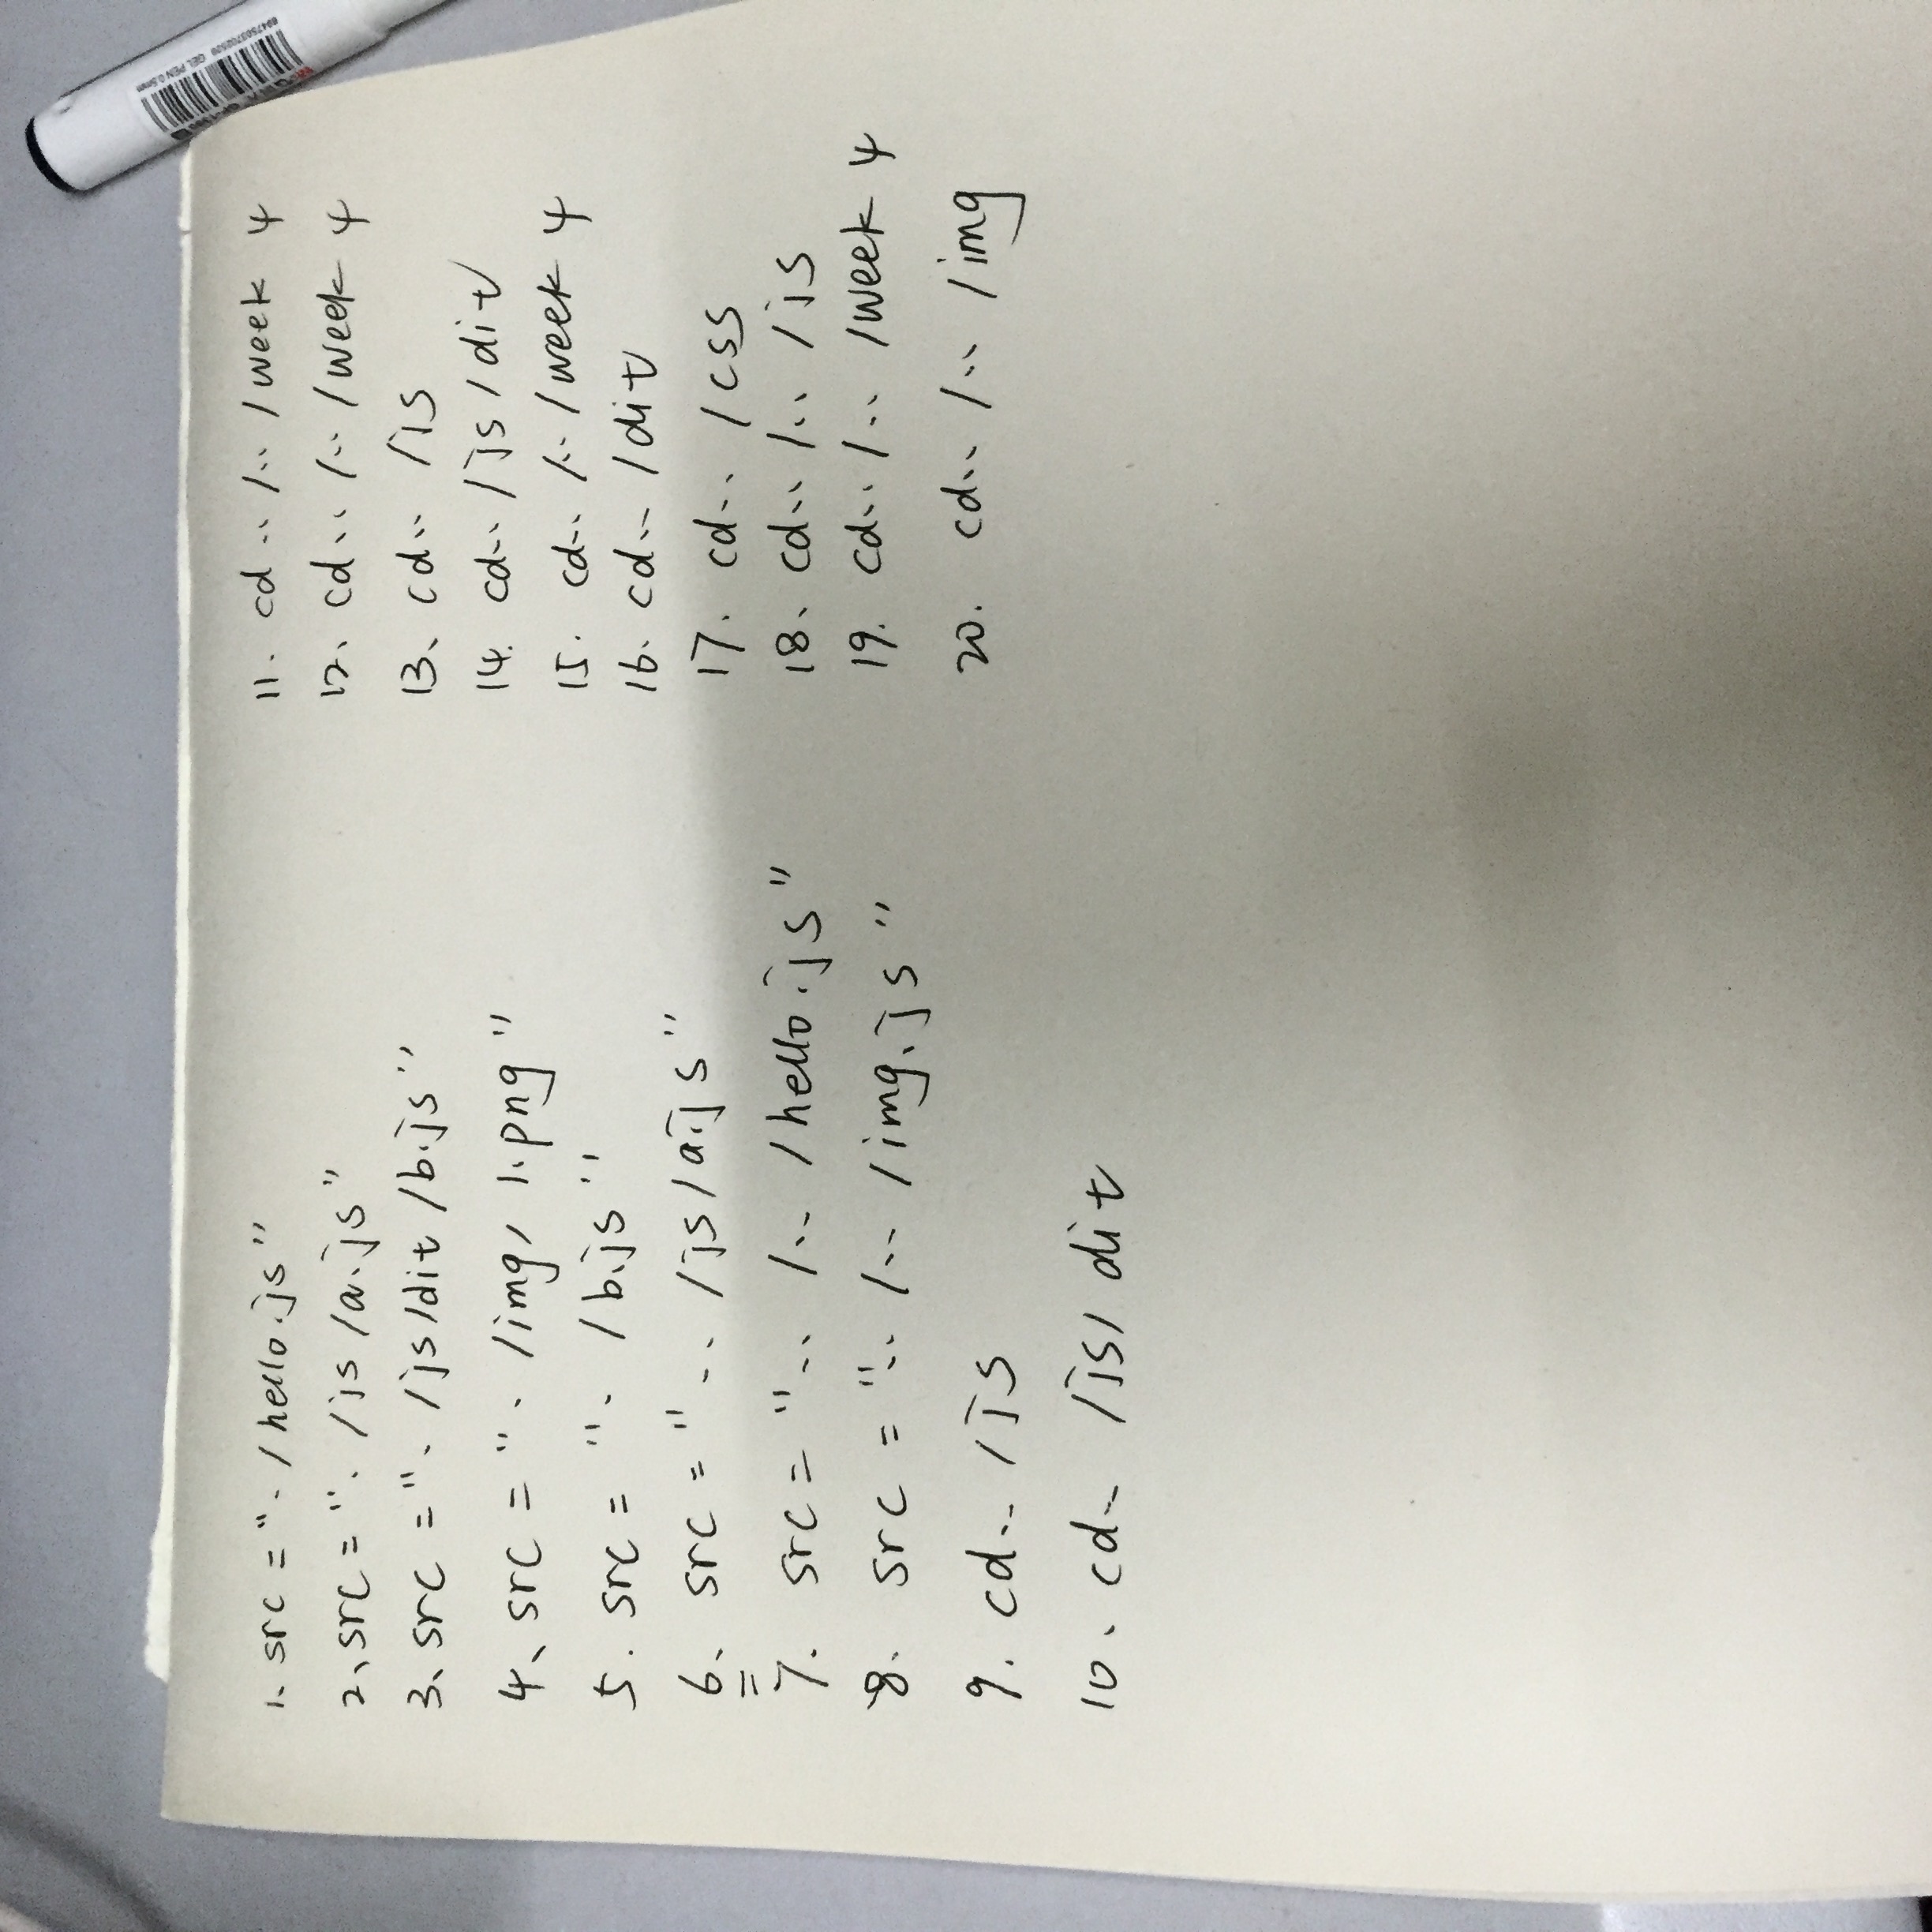 1、src = "./hello.js"
2、src = "./js/a.js"
3、src = "./js/dit/b.js"
4、src = "./img/1.png"
5. src = "./b.js"
6、src = "../js/a.js"
7. src = "../../hello.js"
8. src = "../../img.js"
9. cd../js
10、cd../js/dit
11. cd ../../week 4
12、cd../../week 4
13、cd../js
14. cd../js/dit
15. cd../../week 4
16. cd../dit
17. cd../css
18、cd../../js
19. cd../../week 4
20. cd../../img
GEL PEN 0.5mm